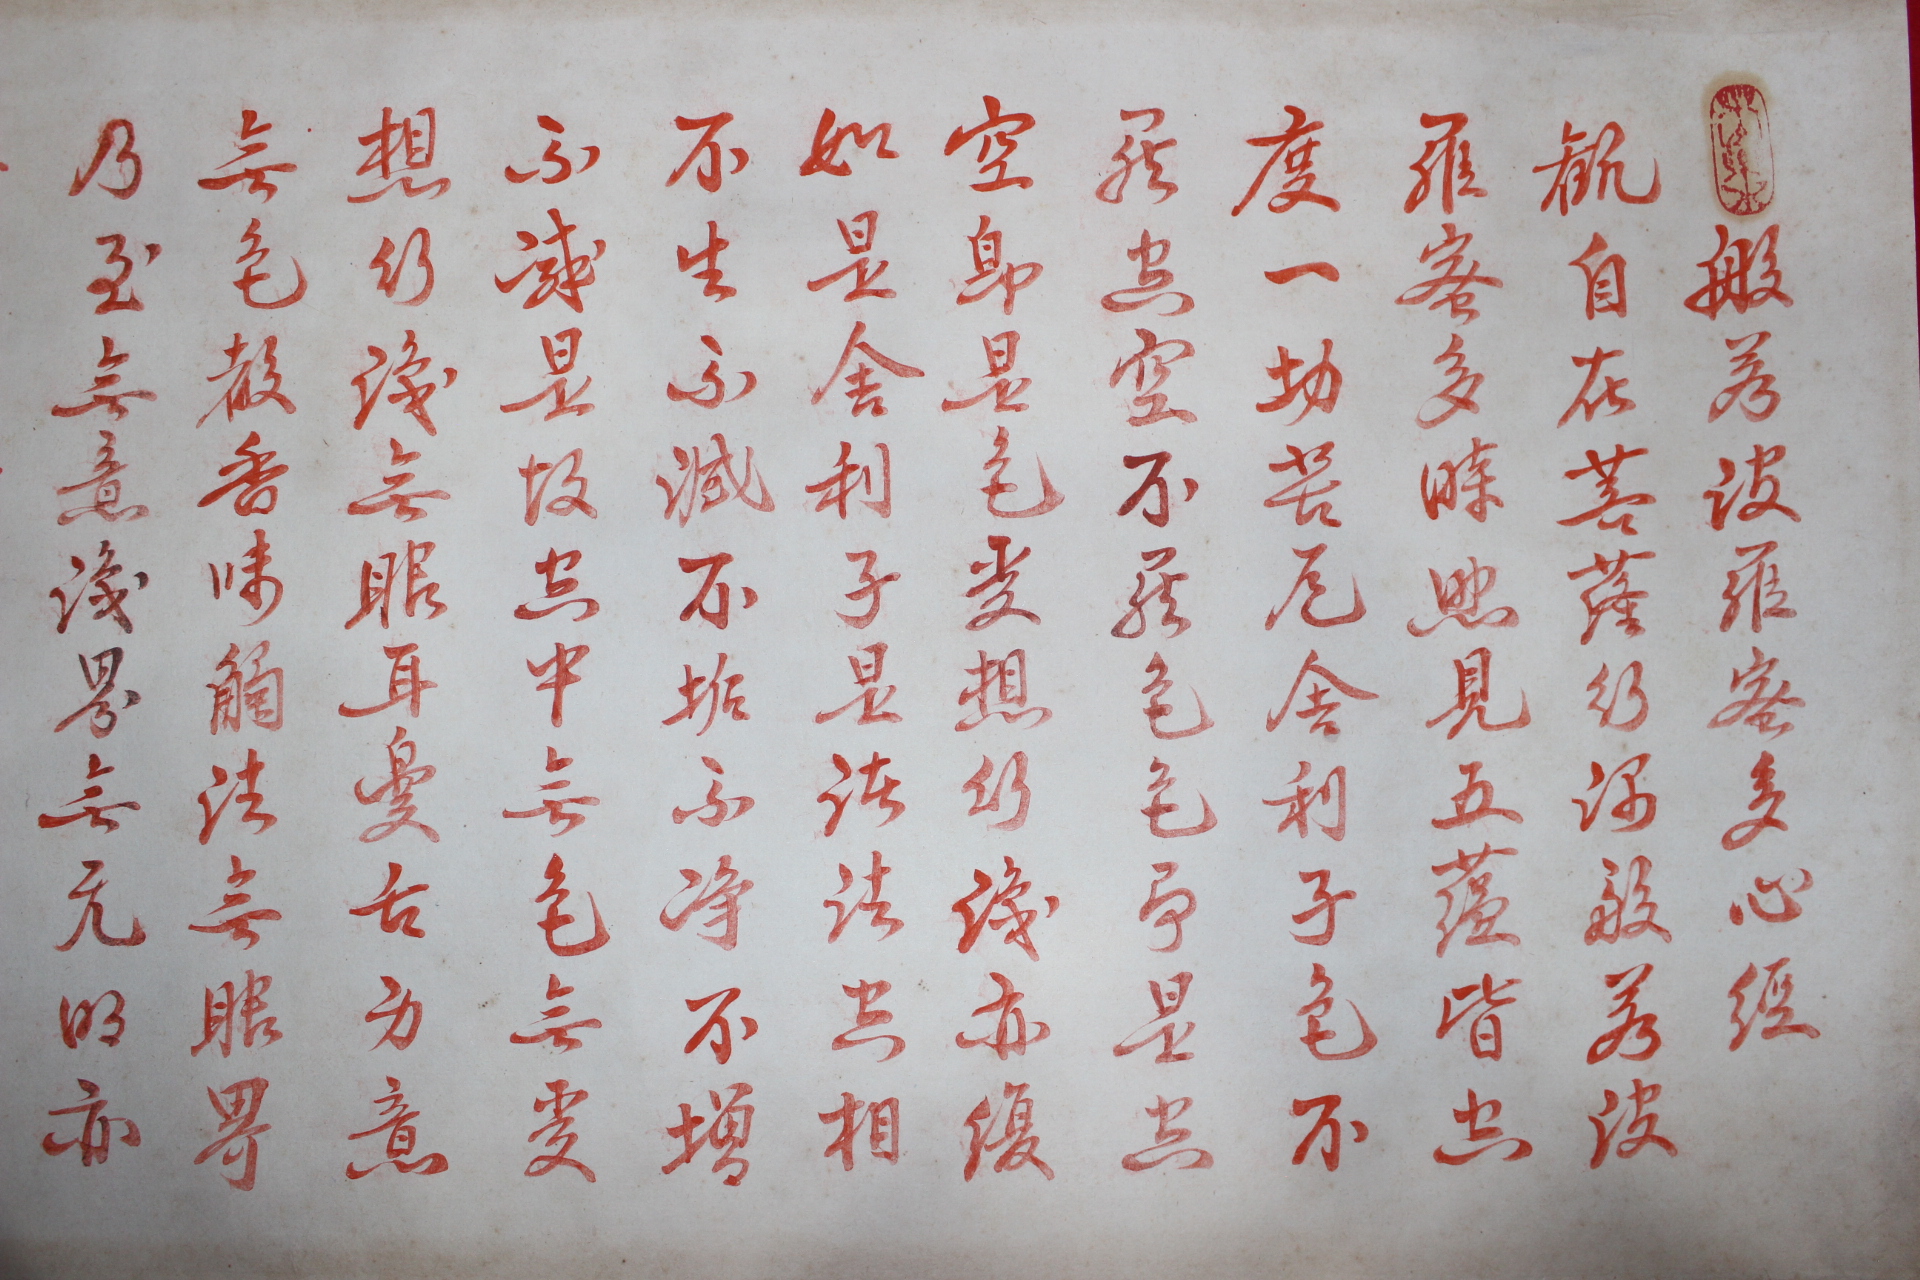 般若波羅蜜多心經
觀自在菩薩行深般若波
羅蜜多時照見五蘊皆空
度一切苦厄舍利子色不
異空空不異色色即是空
空即是色受想行識亦復
如是舍利子是諸法空相
不生不滅不垢不淨不增
不減是故空中無色無受
想行識無眼耳鼻舌身意
無色聲香味觸法無眼界
乃至無意識界無无明亦